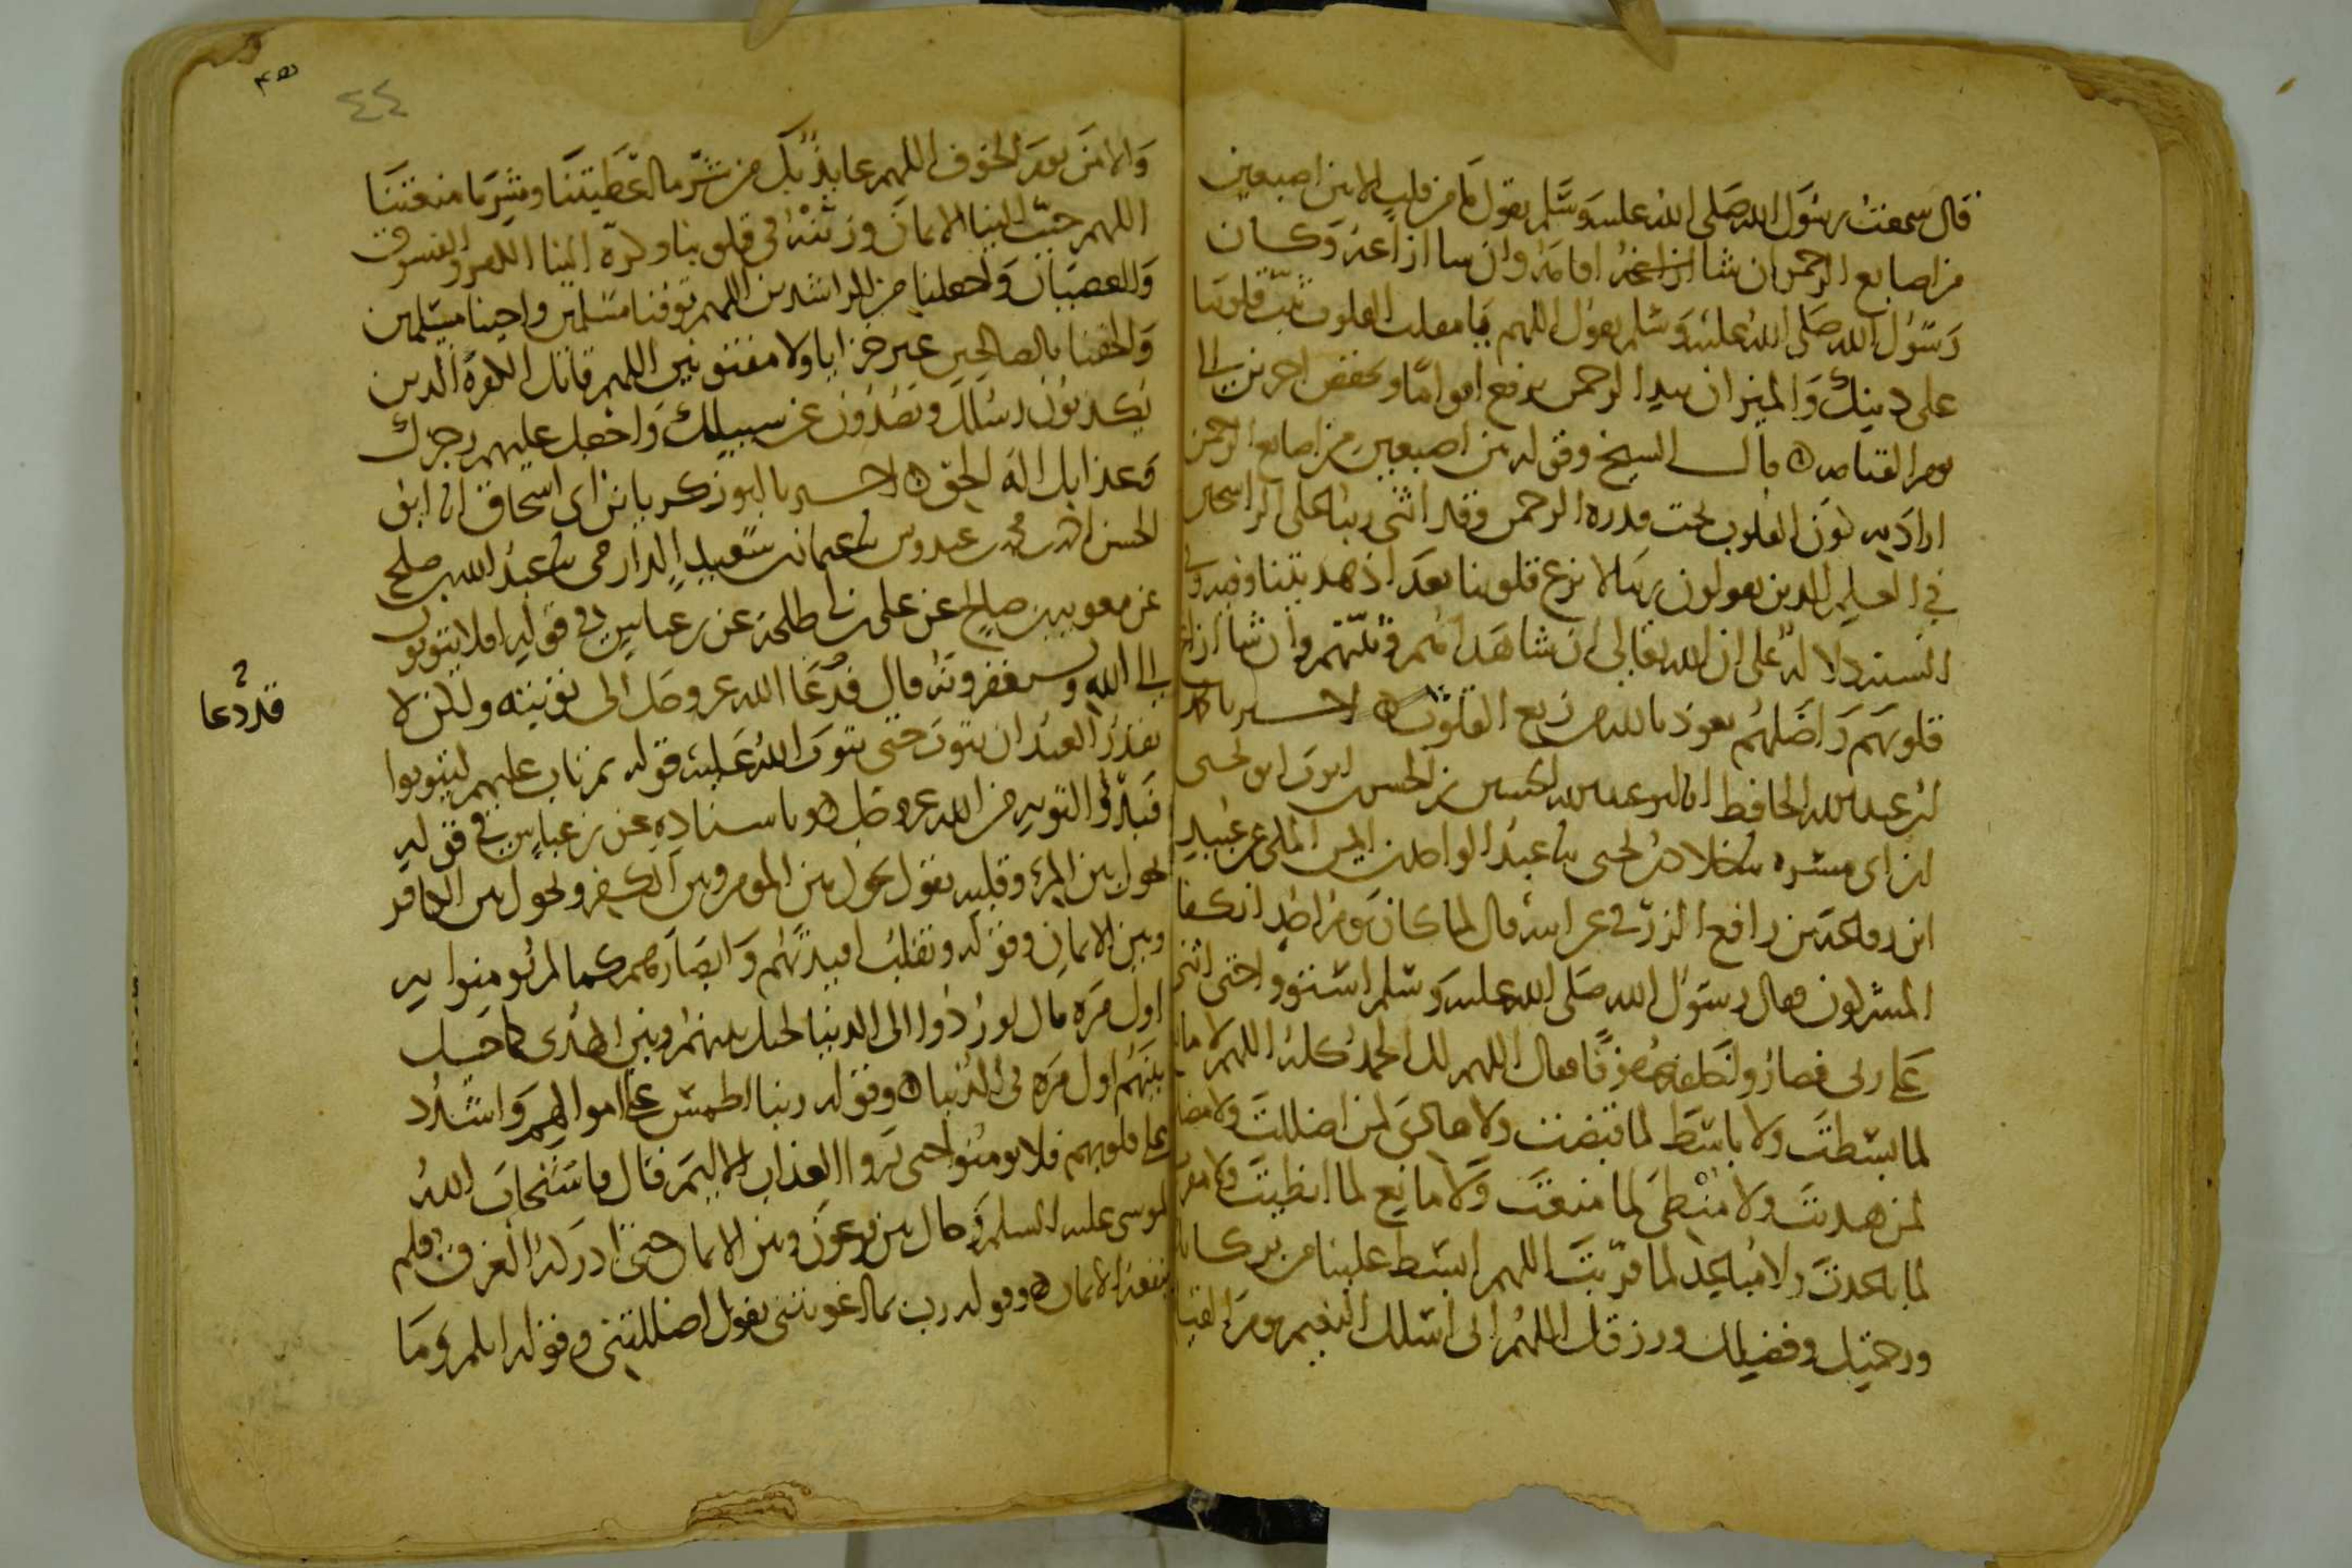 قال سمعت رسول الله صلى الله عليه وسلم يقول ما من قلب الا بين اصبعين
من اصابع الرحمن ان شا ازاغه اقامه وان سا ازاغه وكان
رسول الله صلى الله عليه وسلم يقول اللهم يا مقلب القلوب ثبت قلوبنا
على دينك والميزان بيد الرحمن يرفع اقواما ويخفض اخرين الى
يوم القيامه قال الشيخ وقوله بين اصبعين من اصابع الرحمن
اراد به كون القلوب تحت قدره الرحمن وقد اثنى ربنا على الراسخين
في العلم الدين يقولون ربنا لا تزغ قلوبنا بعد اذ هديتنا وفيه وفي
السنه دلاله على ان الله تعالى ان شا هداهم وثبتهم وان شا ازاغ
قلوبهم واضلهم نعوذ بالله من زيغ القلوب اخبرنا
ابو عبد الله الحافظ انا ابو عبد الله الحسين بن الحسن ابن ايوب ابو يحيى
ابن ابي مسره خلاد بن يحيى عبد الواحد بن ايمن المكي عن عبيد
ابن رفاعة بن رافع الزرقي عن ابيه قال لما كان يوم احد انكفا
المشركون فقال رسول الله صلى الله عليه وسلم استووا حتى اثني
على ربي فصاروا خلفه صفوفا فقال اللهم لك الحمد كله اللهم لا مانع
لما بسطت ولا باسط لما قبضت ولا هادي لمن اضللت ولا مضل
لمن هديت ولا منطي لما منعت ولا مانع لما انطيت ولا مقرب
لما باعدت ولا مباعد لما قربت اللهم ابسط علينا من بركاتك
ورحمتك وفضلك ورزقك اللهم اني اسلك النعيم يوم القيا
٤٤
والامن يوم الخوف اللهم عايذ بك من شر ما اعطيتنا وشر ما منعتنا
اللهم حبب الينا الايمان وزينه في قلوبنا وكره الينا الكفر والفسوق
والعصيان واجعلنا من الراشدين اللهم توفنا مسلمين واحينا مسلمين
والحقنا بالصالحين غير خزايا ولا مفتونين اللهم قاتل الكفرة الدين
يكذبون رسلك ويصدون عن سبيلك واجعل عليهم رجزك
وعذابك اله الحق اخبرنا ابو زكريا بن ابي اسحاق انا ابو
الحسن احمد بن محمد بن عبدوس عثمان بن سعيد الدارمي عبد الله بن صلح
عن معوية بن صالح عن علي بن ابي طلحة عن بن عباس في قوله افلا يتوبون
الى الله ويستغفرونه قال فدعا الله عز وجل الى توبته ولكن لا
قد دعا
يقدر العبد ان يتوب حتى يتوب الله عليه قوله ثم تاب عليهم ليتوبوا
فبدؤ التوبه من الله عز وجل وباسناده عن بن عباس في قوله
يحول بين المرء وقلبه يقول يحول بين المومن وبين الكفر ويحول بين الكافر
وبين الايمان وقوله ونقلب افيدتهم وابصارهم كما لم يومنوا به
اول مره قال لو ردوا الى الدنيا لحيل بينهم وبين الهدى كما حيل
بينهم اول مره في الدنيا وقوله ربنا اطمس على اموالهم واشدد
على قلوبهم فلا يومنوا حتى يروا العذاب الاليم فقال فاستجاب الله
لموسى عليه السلم وحال بين فرعون وبين الايمان حتى ادركه الغرق فلم
ينفعه الايمان وقوله رب بما اغويتني يقول اضللتني وقوله انكم وما